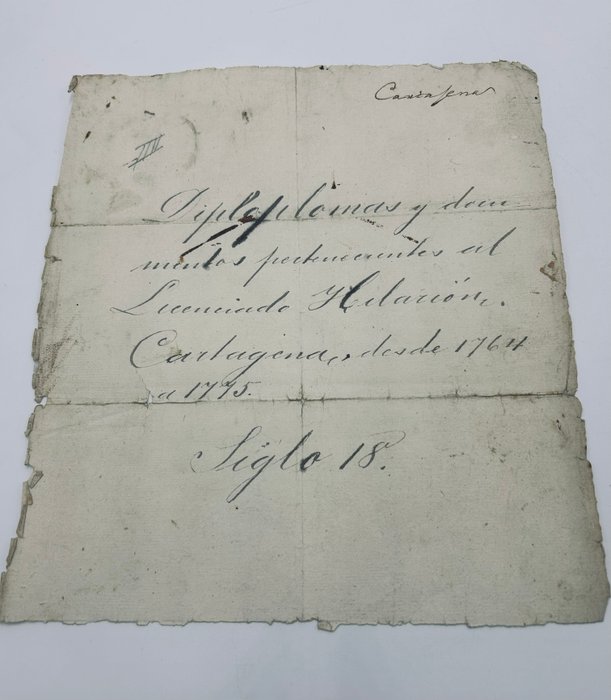 Cartagena
VIII
Diploplomas y docu-
mentos pertenecientes al
Licenciado Hilarión,
Cartagena, desde 1764
a 1775.
Siglo 18.